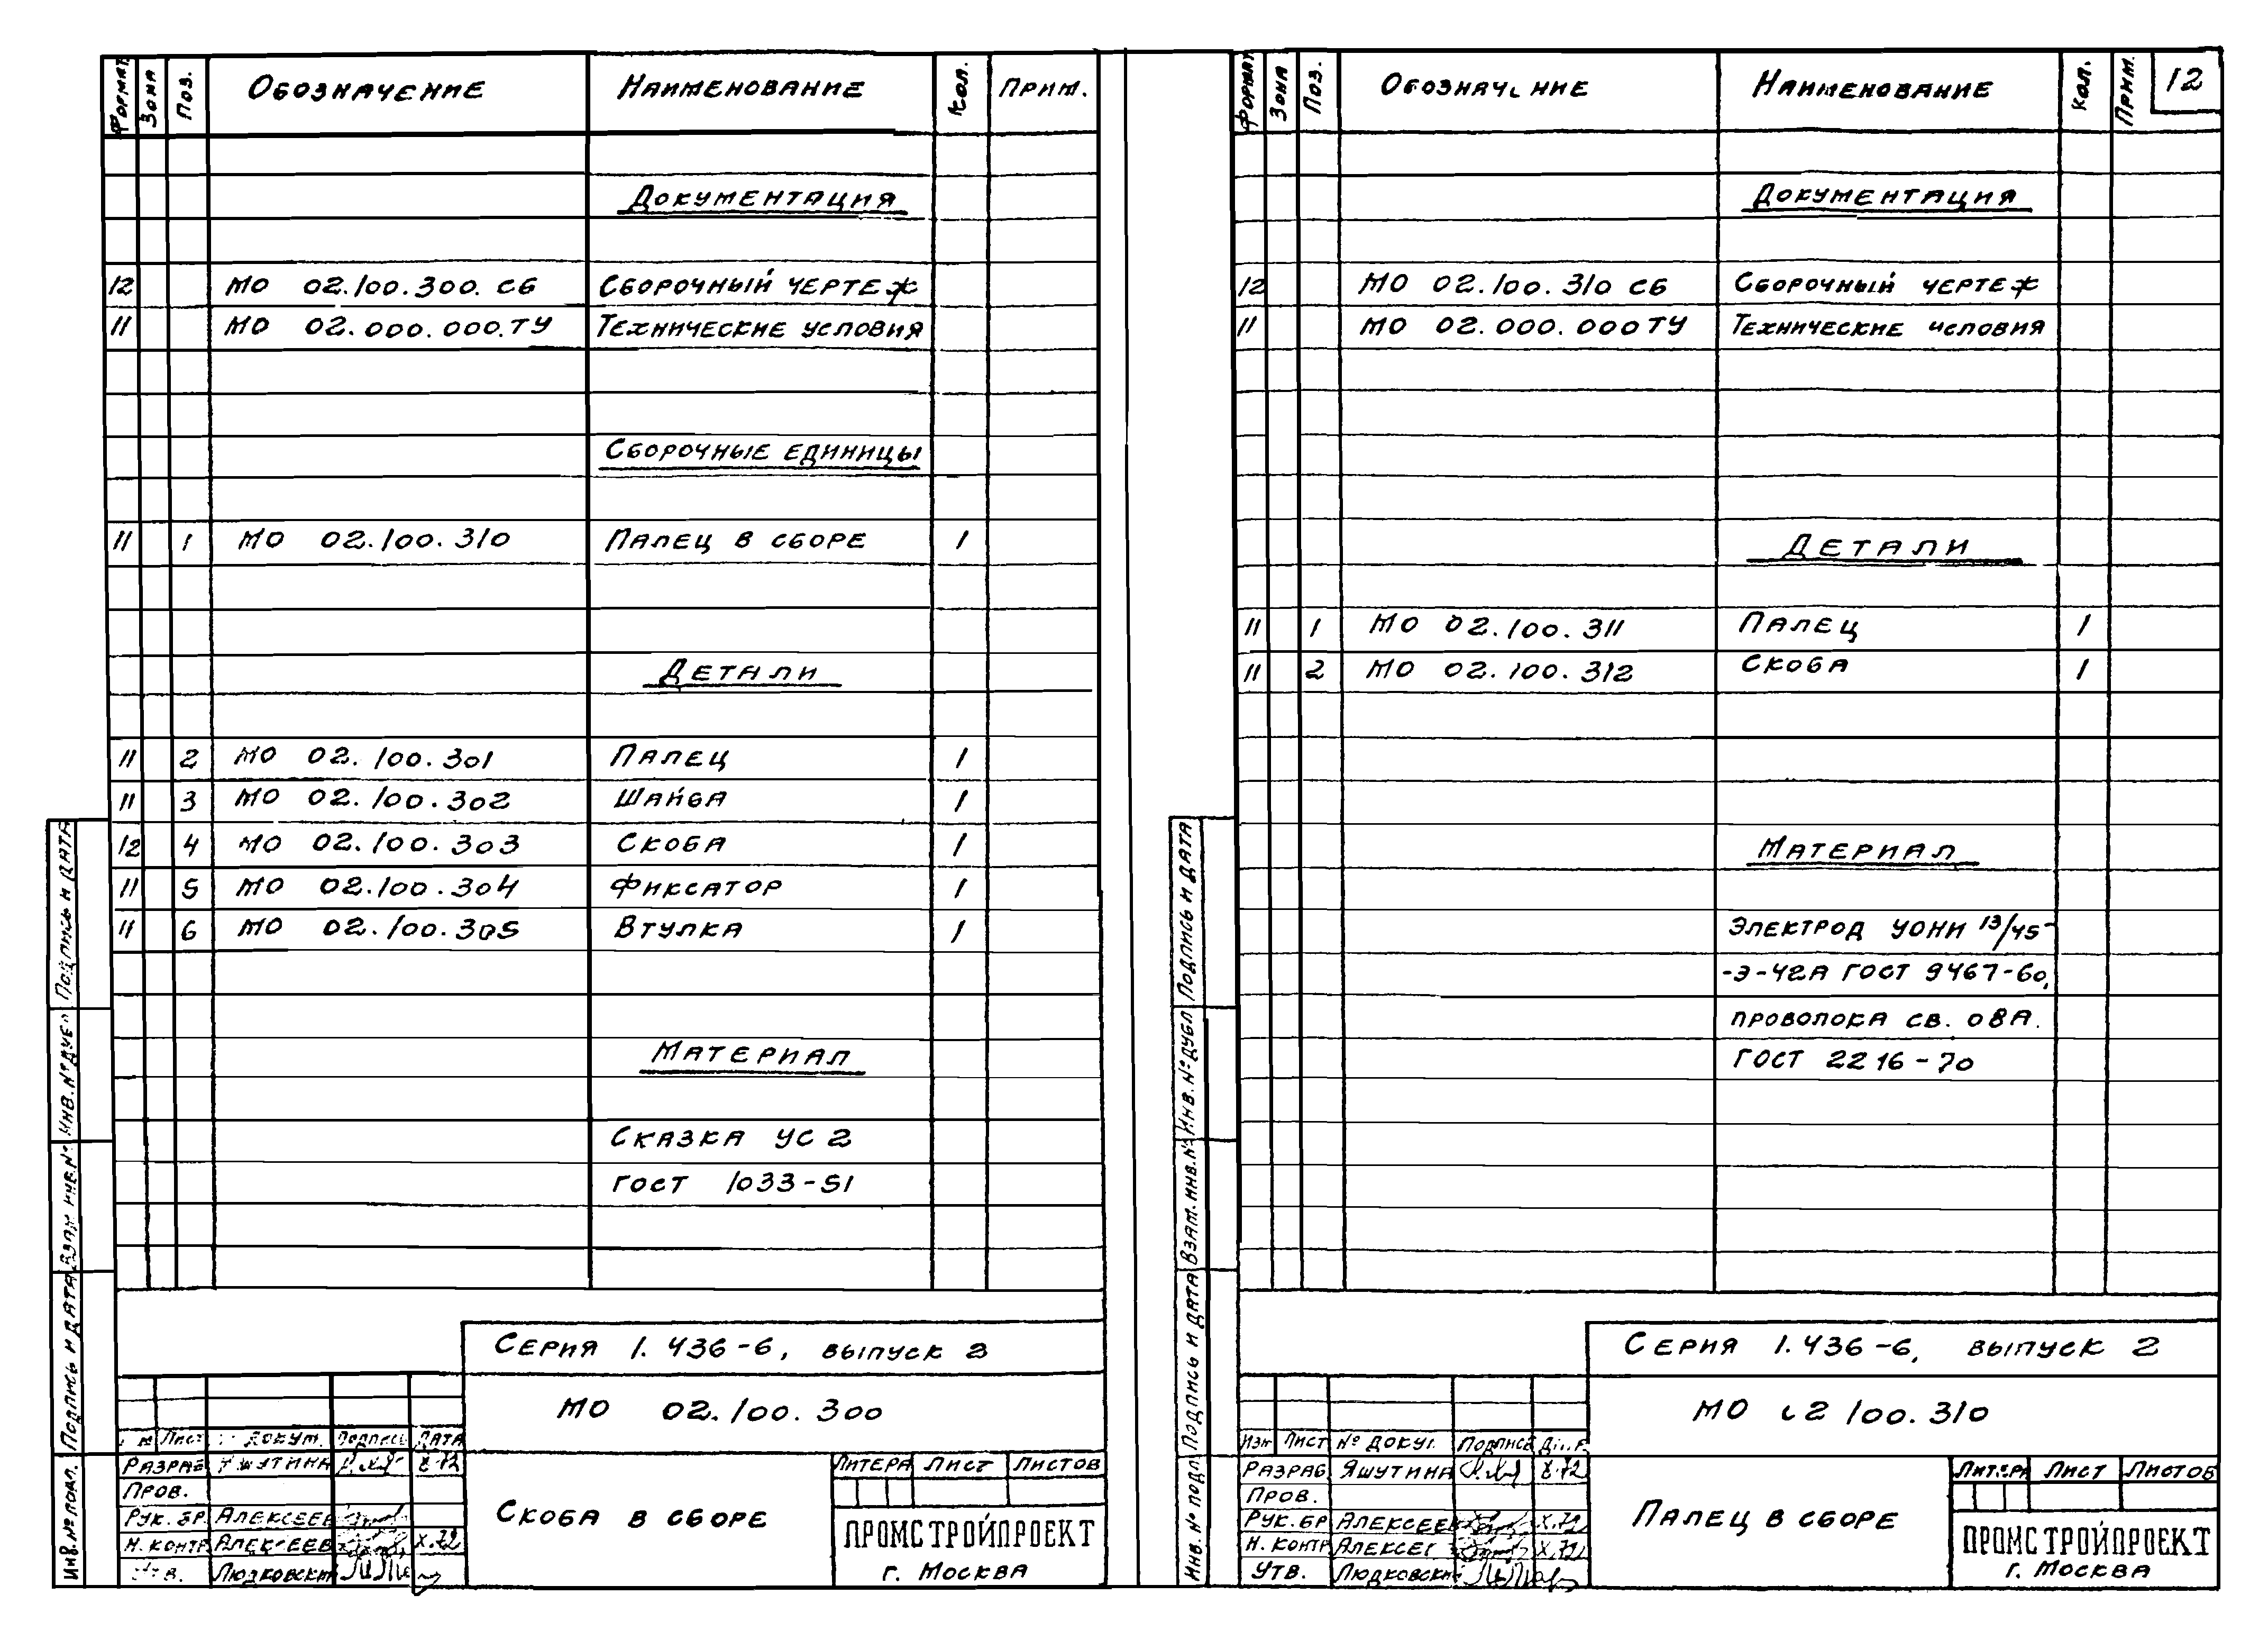 Формат Зона Поз. Обозначение Наименование Кол. Прим.
Документация
12 МО 02.100.300.СБ Сборочный чертеж
11 МО 02.000.000.ТУ Технические условия
Сборочные единицы
11 1 МО 02.100.310 Палец в сборе 1
Детали
11 2 МО 02.100.301 Палец 1
11 3 МО 02.100.302 Шайба 1
12 4 МО 02.100.303 Скоба 1
11 5 МО 02.100.304 Фиксатор 1
11 6 МО 02.100.305 Втулка 1
Материал
Сказка УС 2
ГОСТ 1033-51
Серия 1.436-6, выпуск 2
МО 02.100.300
Лист докум. Подпись Дата
Разраб
Пров.
Рук. бр. Алексеев
Н. контр Алексеев X.72
Утв.
Скоба в сборе
Литера Лист Листов
ПРОМСТРОЙПРОЕКТ
г. Москва
Подпись и дата
Инв. № дубл
Взам. инв. №
Подпись и дата
Инв. № подл.
Формат Зона Поз. Обозначение Наименование Кол. Прим. 12
Документация
12 МО 02.100.310 СБ Сборочный чертеж
11 МО 02.000.000 ТУ Технические условия
Детали
11 1 МО 02.100.311 Палец 1
11 2 МО 02.100.312 Скоба 1
Материал
Электрод УОНИ 13/45-
-Э-42А ГОСТ 9467-60,
проволока св. 08А.
ГОСТ 2216-70
Серия 1.436-6, выпуск 2
МО 02 100.310
Изм Лист № докум. Подпись Дата
Разраб. Яшутина X.72
Пров.
Рук. бр Алексеев X.72
Н. контр Алексеев X.72
Утв. Людковский
Палец в сборе
Литера Лист Листов
ПРОМСТРОЙПРОЕКТ
г. Москва
Подпись и дата
Инв. № дубл
Взам. инв. №
Подпись и дата
Инв. № подл